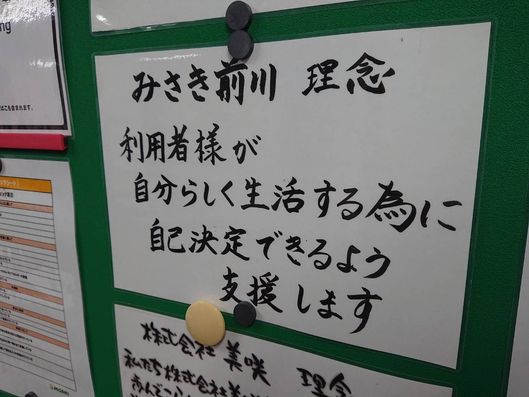 みさき前川 理念
利用者様が
自分らしく生活する為に
自己決定できるよう
支援します
株式会社 美咲 理念
私たち株式会社美